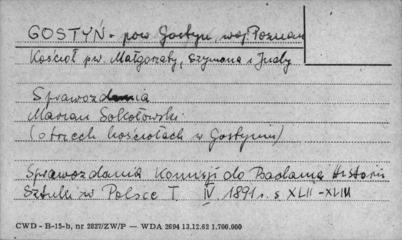 GOSTYŃ - pow Gostyń, woj. Poznań
Kościół pw. Małgorzaty, Szymona i Judy
Sprawozdania
Marian Sokołowski
(o trzech kościołach w Gostyniu)
Sprawozdania Komisji do Badania Historii
Sztuki w Polsce T. IV. 1891 r. s XLII - XLIII
CWD - H-15-b, nr 2827/ZW/P — WDA 2694 13.12.62 1.700.000